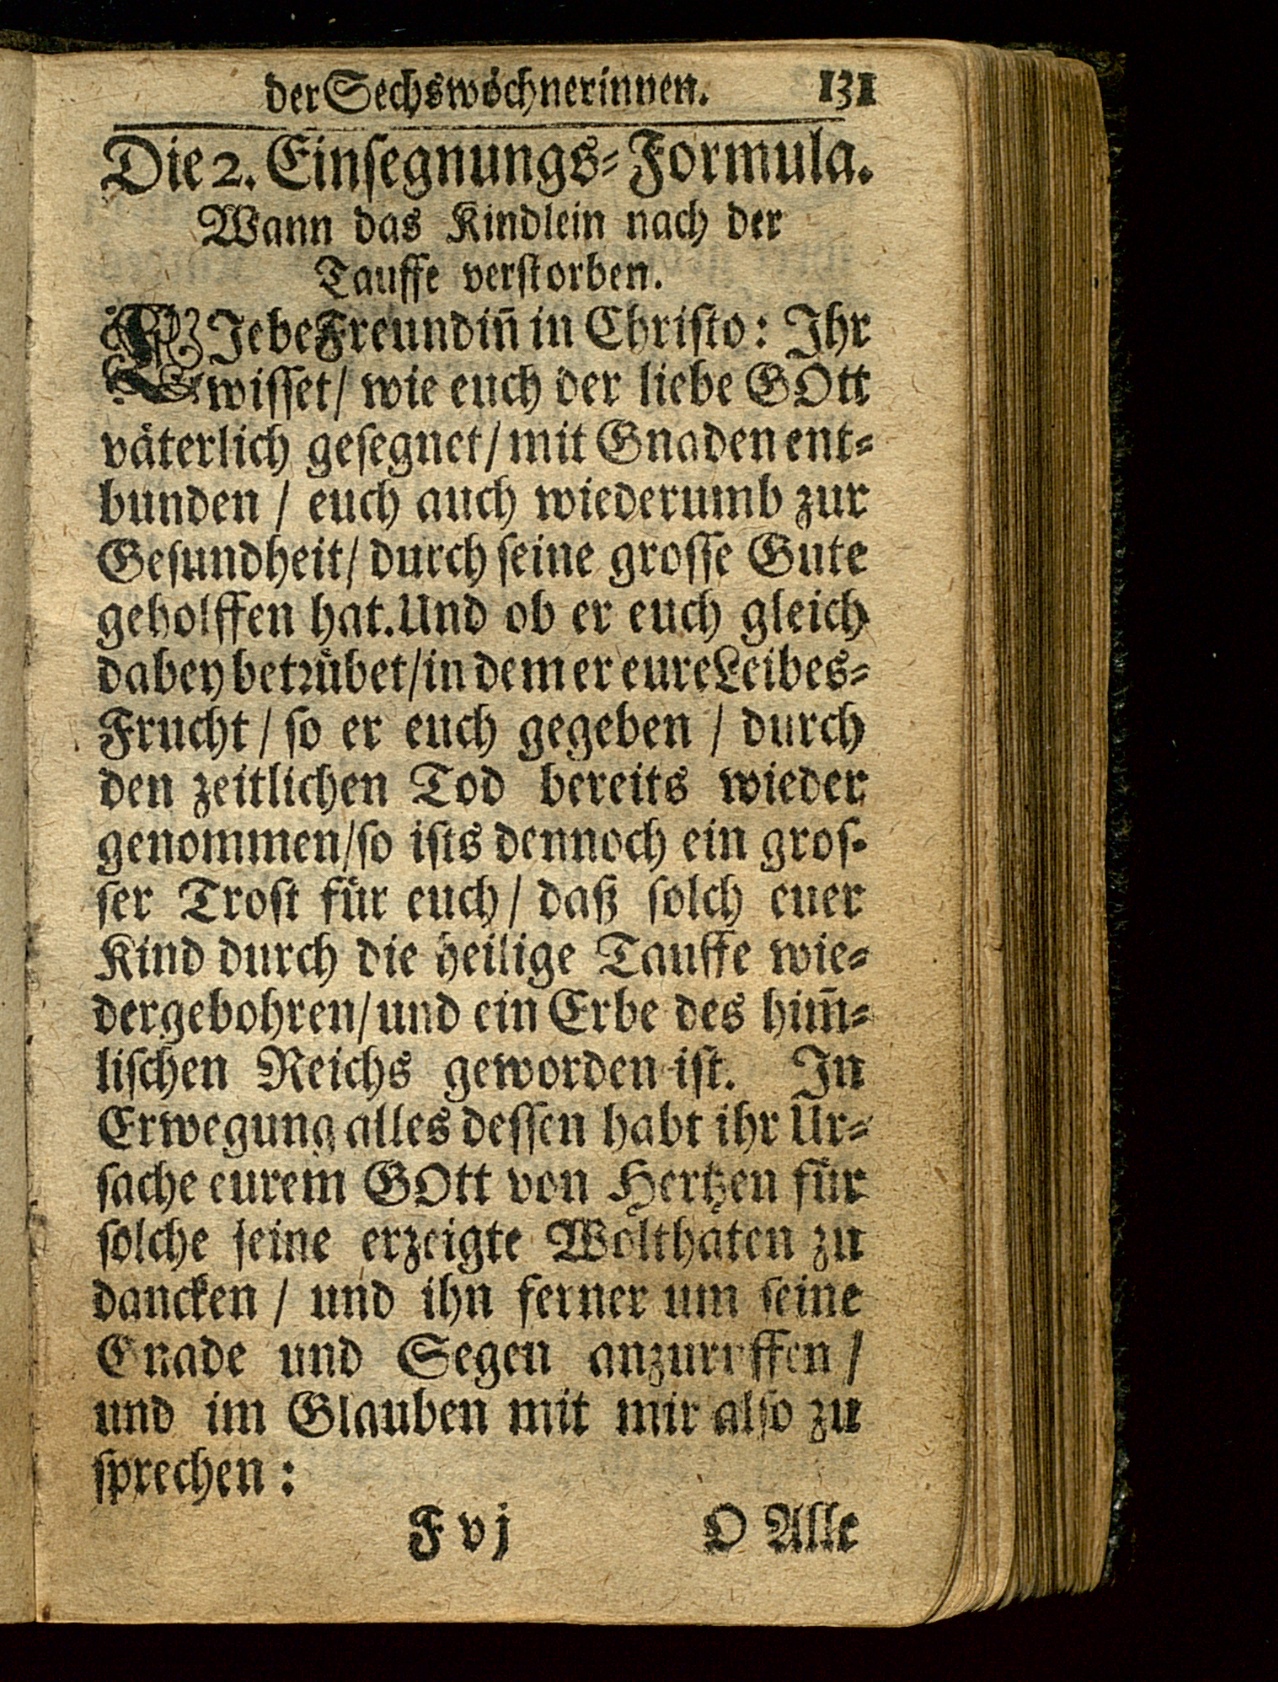 der Sechswöchnerinnen. 131
Die 2. Einsegnungs-Formula.
Wann das Kindlein nach der
Tauffe verstorben.
LIebe Freundin̄ in Christo: Ihr
wisset/ wie euch der liebe GOtt
väterlich gesegnet/ mit Gnaden ent-
bunden / euch auch wiederumb zur
Gesundheit/ durch seine grosse Güte
geholffen hat. Und ob er euch gleich
dabey betrübet/ in dem er eure Leibes-
Frucht / so er euch gegeben / durch
den zeitlichen Tod bereits wieder
genommen/ so ists dennoch ein gros-
ser Trost für euch / daß solch euer
Kind durch die heilige Tauffe wie-
dergebohren/ und ein Erbe des him̄-
lischen Reichs geworden ist. In
Erwegung alles dessen habt ihr Ur-
sache eurem GOtt von Hertzen für
solche seine erzeigte Wolthaten zu
dancken / und ihn ferner um seine
Gnade und Segen anzuruffen /
und im Glauben mit mir also zu
sprechen:
F vj O Alle